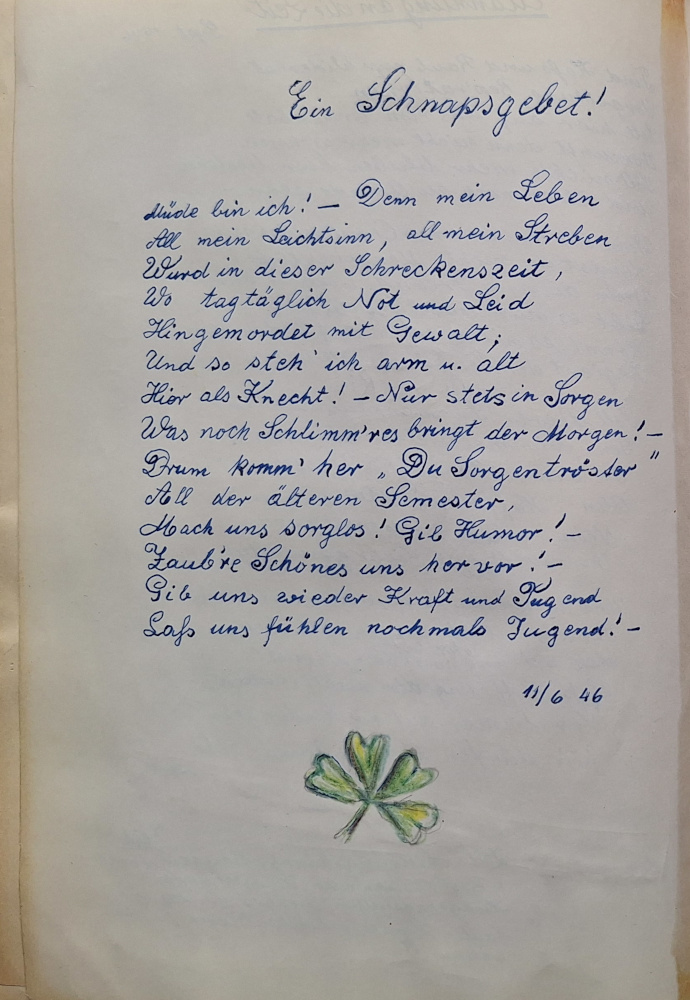 Ein Schnapsgebet!
Müde bin ich! – Denn mein Leben
All mein Leichtsinn, all mein Streben
Wurd in dieser Schreckenszeit,
Wo tagtäglich Not und Leid
Hingemordet mit Gewalt;
Und so steh' ich arm u. alt
Hier als Knecht! – Nur stets in Sorgen
Was noch Schlimm'res bringt der Morgen! –
Drum komm' her „Du Sorgentröster"
All der älteren Semester,
Mach uns sorglos! Gib Humor! –
Zaub're Schönes uns hervor! –
Gib uns wieder Kraft und Tugend
Laß uns fühlen nochmals Jugend! –
11/6 46